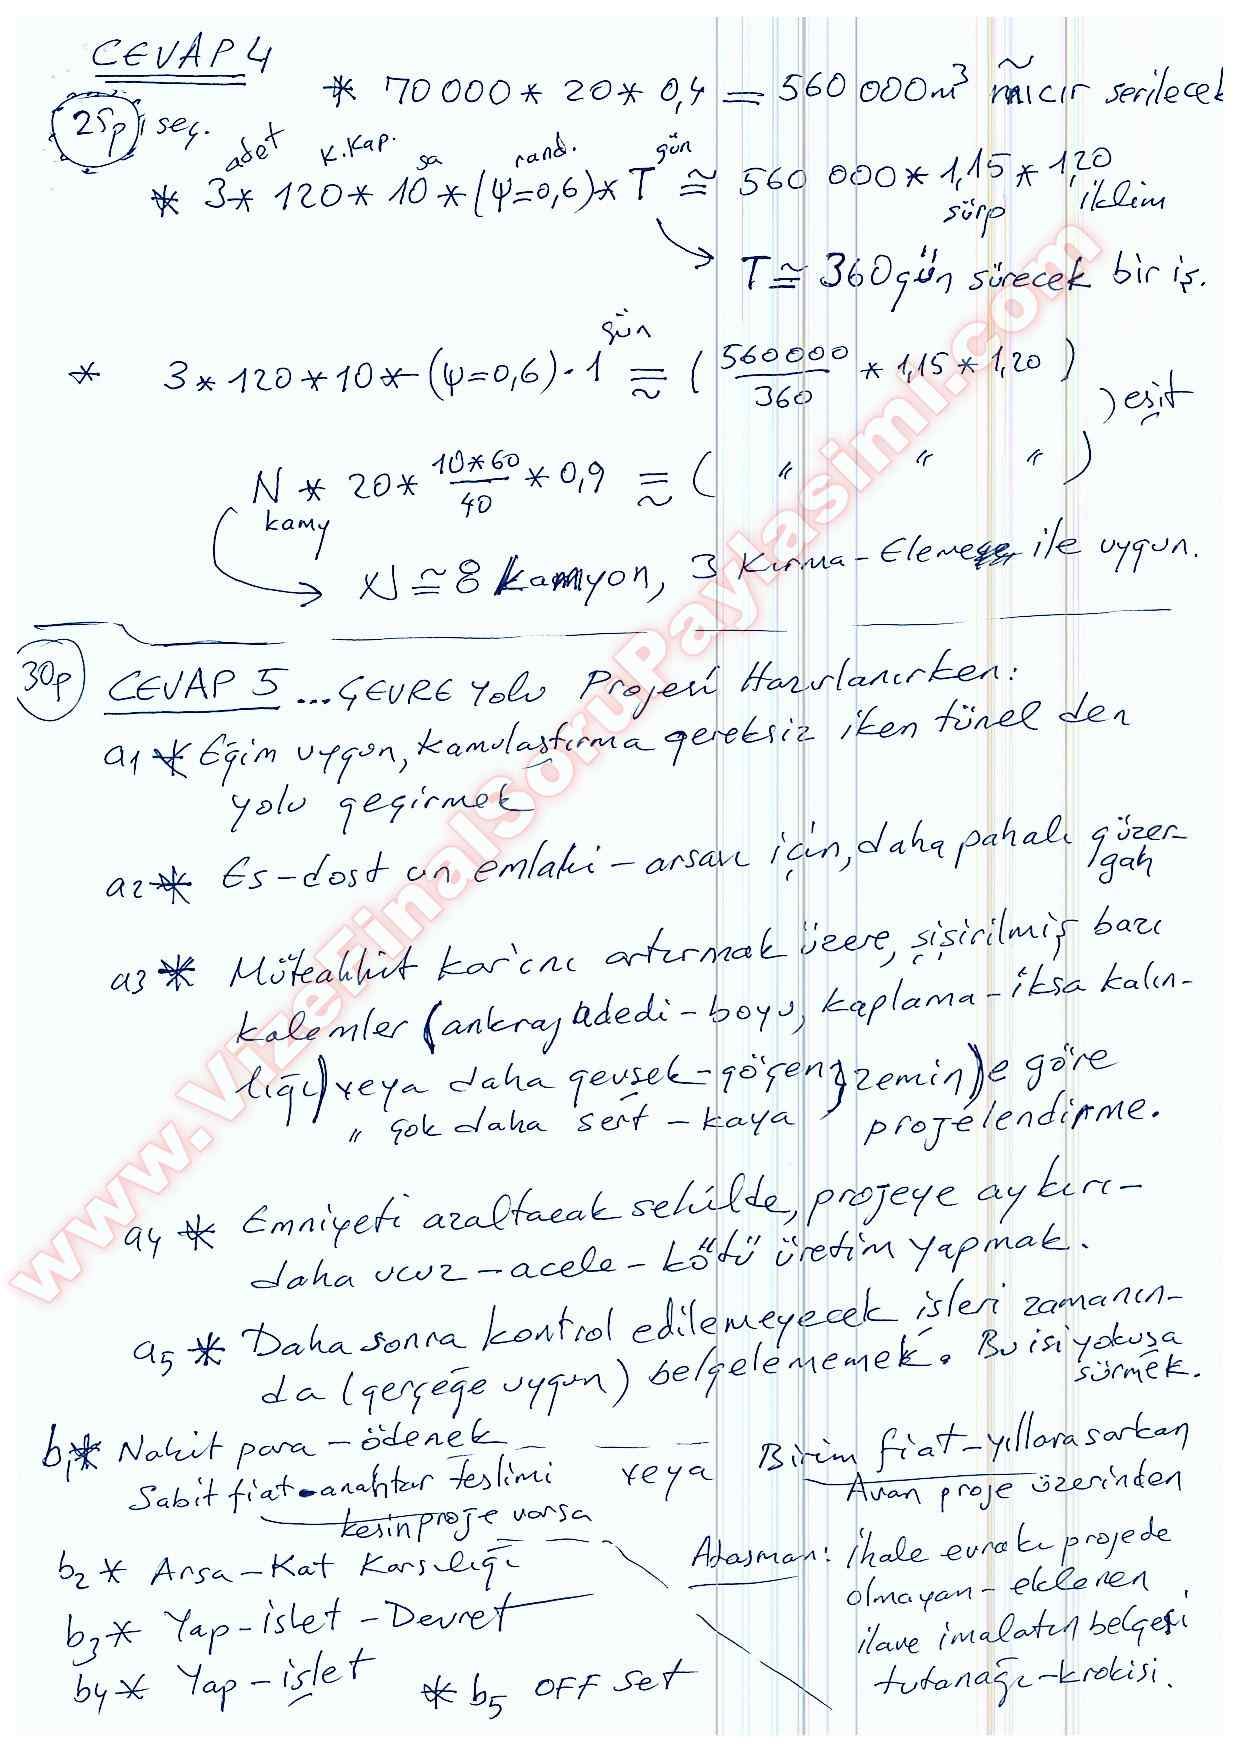 CEVAP 4
* 70 000 * 20 * 0,4 = 560 000 m³ mıcır serilecek
25p seç.
adet K.Kap. sa rand. gün
* 3 * 120 * 10 * (ψ=0,6) * T ≅ 560 000 * 1,15 * 1,20
sürp iklim
T ≅ 360 gün sürecek bir iş.
gün
* 3 * 120 * 10 * (ψ=0,6) · 1 ≅ ( 560 000 / 360 * 1,15 * 1,20 )
) eşit
N * 20 * 10*60 / 40 * 0,9 ≅ ( " " " )
kamy
N ≅ 8 kamyon, 3 Kırma-Eleme ile uygun.
30p CEVAP 5 ... ÇEVRE Yolu Projesi Hazırlanırken:
a1 * Eğim uygun, kamulaştırma gereksiz iken tünel den
yolu geçirmek
a2 * Es-dost un emlaki - arsası için, daha pahalı güzer-
gah
a3 * Müteahhit kar'ını artırmak üzere, şişirilmiş bazı
kalemler (ankraj adedi - boyu, kaplama - iksa kalın-
lığı) veya daha gevşek - göçen } zemin)e göre
" çok daha sert - kaya } projelendirme.
a4 * Emniyeti azaltacak şekilde, projeye aykırı -
daha ucuz - acele - kötü üretim yapmak.
a5 * Daha sonra kontrol edilemeyecek işleri zamanın-
da (gerçeğe uygun) belgelememek. Bu işi yokuşa
sürmek.
b1 * Nakit para - ödenek veya Birim fiat - yıllara sarkan
Sabit fiat - anahtar teslimi Avan proje üzerinden
kesin proje varsa
b2 * Arsa - Kat Karşılığı
Ataşman: İhale evrakı projede
olmayan - eklenen
b3 * Yap - işlet - Devret
ilave imalatın belgesi
b4 * Yap - işlet * b5 OFF Set
tutanağı - krokisi.
www.VizeFinalSoruPaylasimi.com